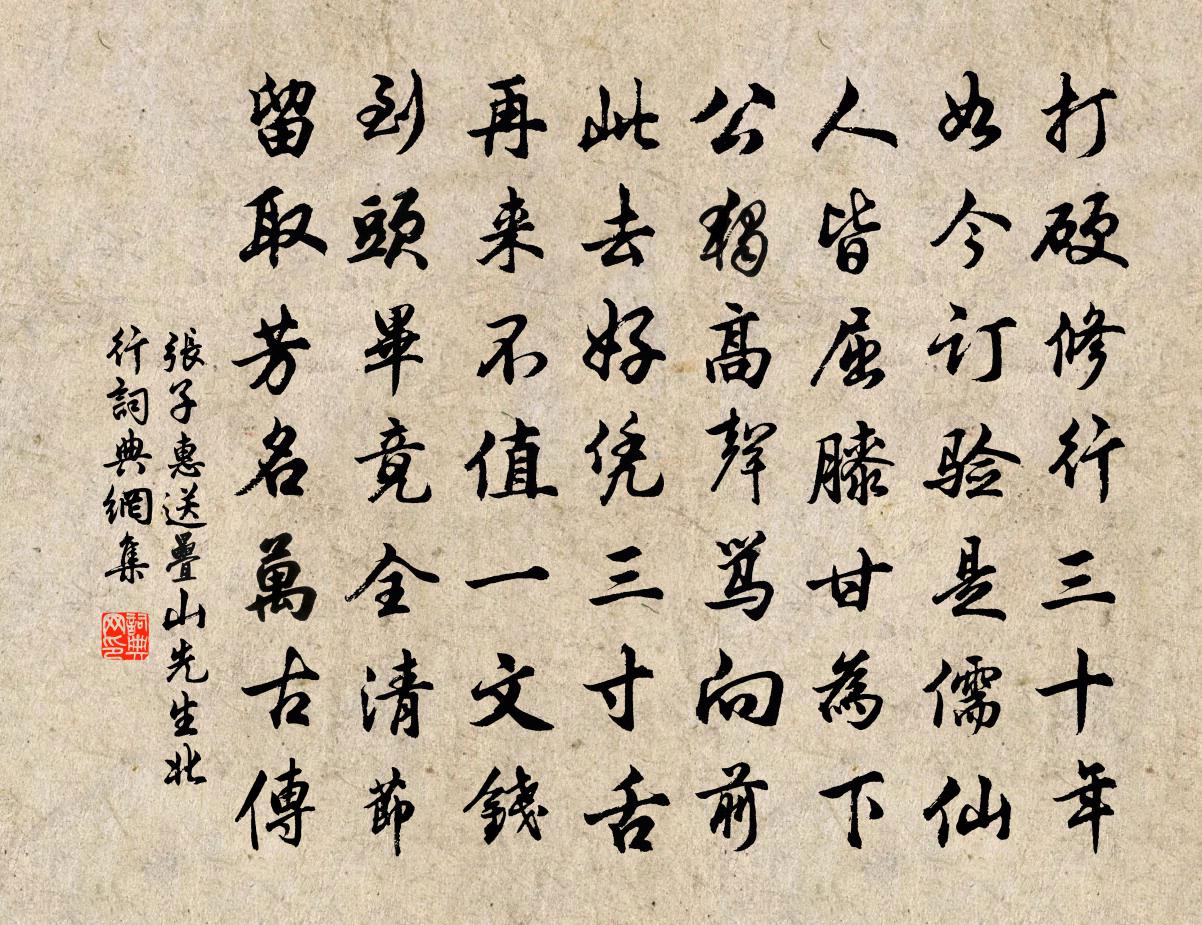 打硬修行三十年
如今订验是儒仙
人皆屈膝甘為下
公獨高聲骂向前
此去好凭三寸舌
再来不值一文錢
到頭畢竟全清節
留取芳名萬古傳
張子惠送疊山先生北
行詞典網集
詞典
网印